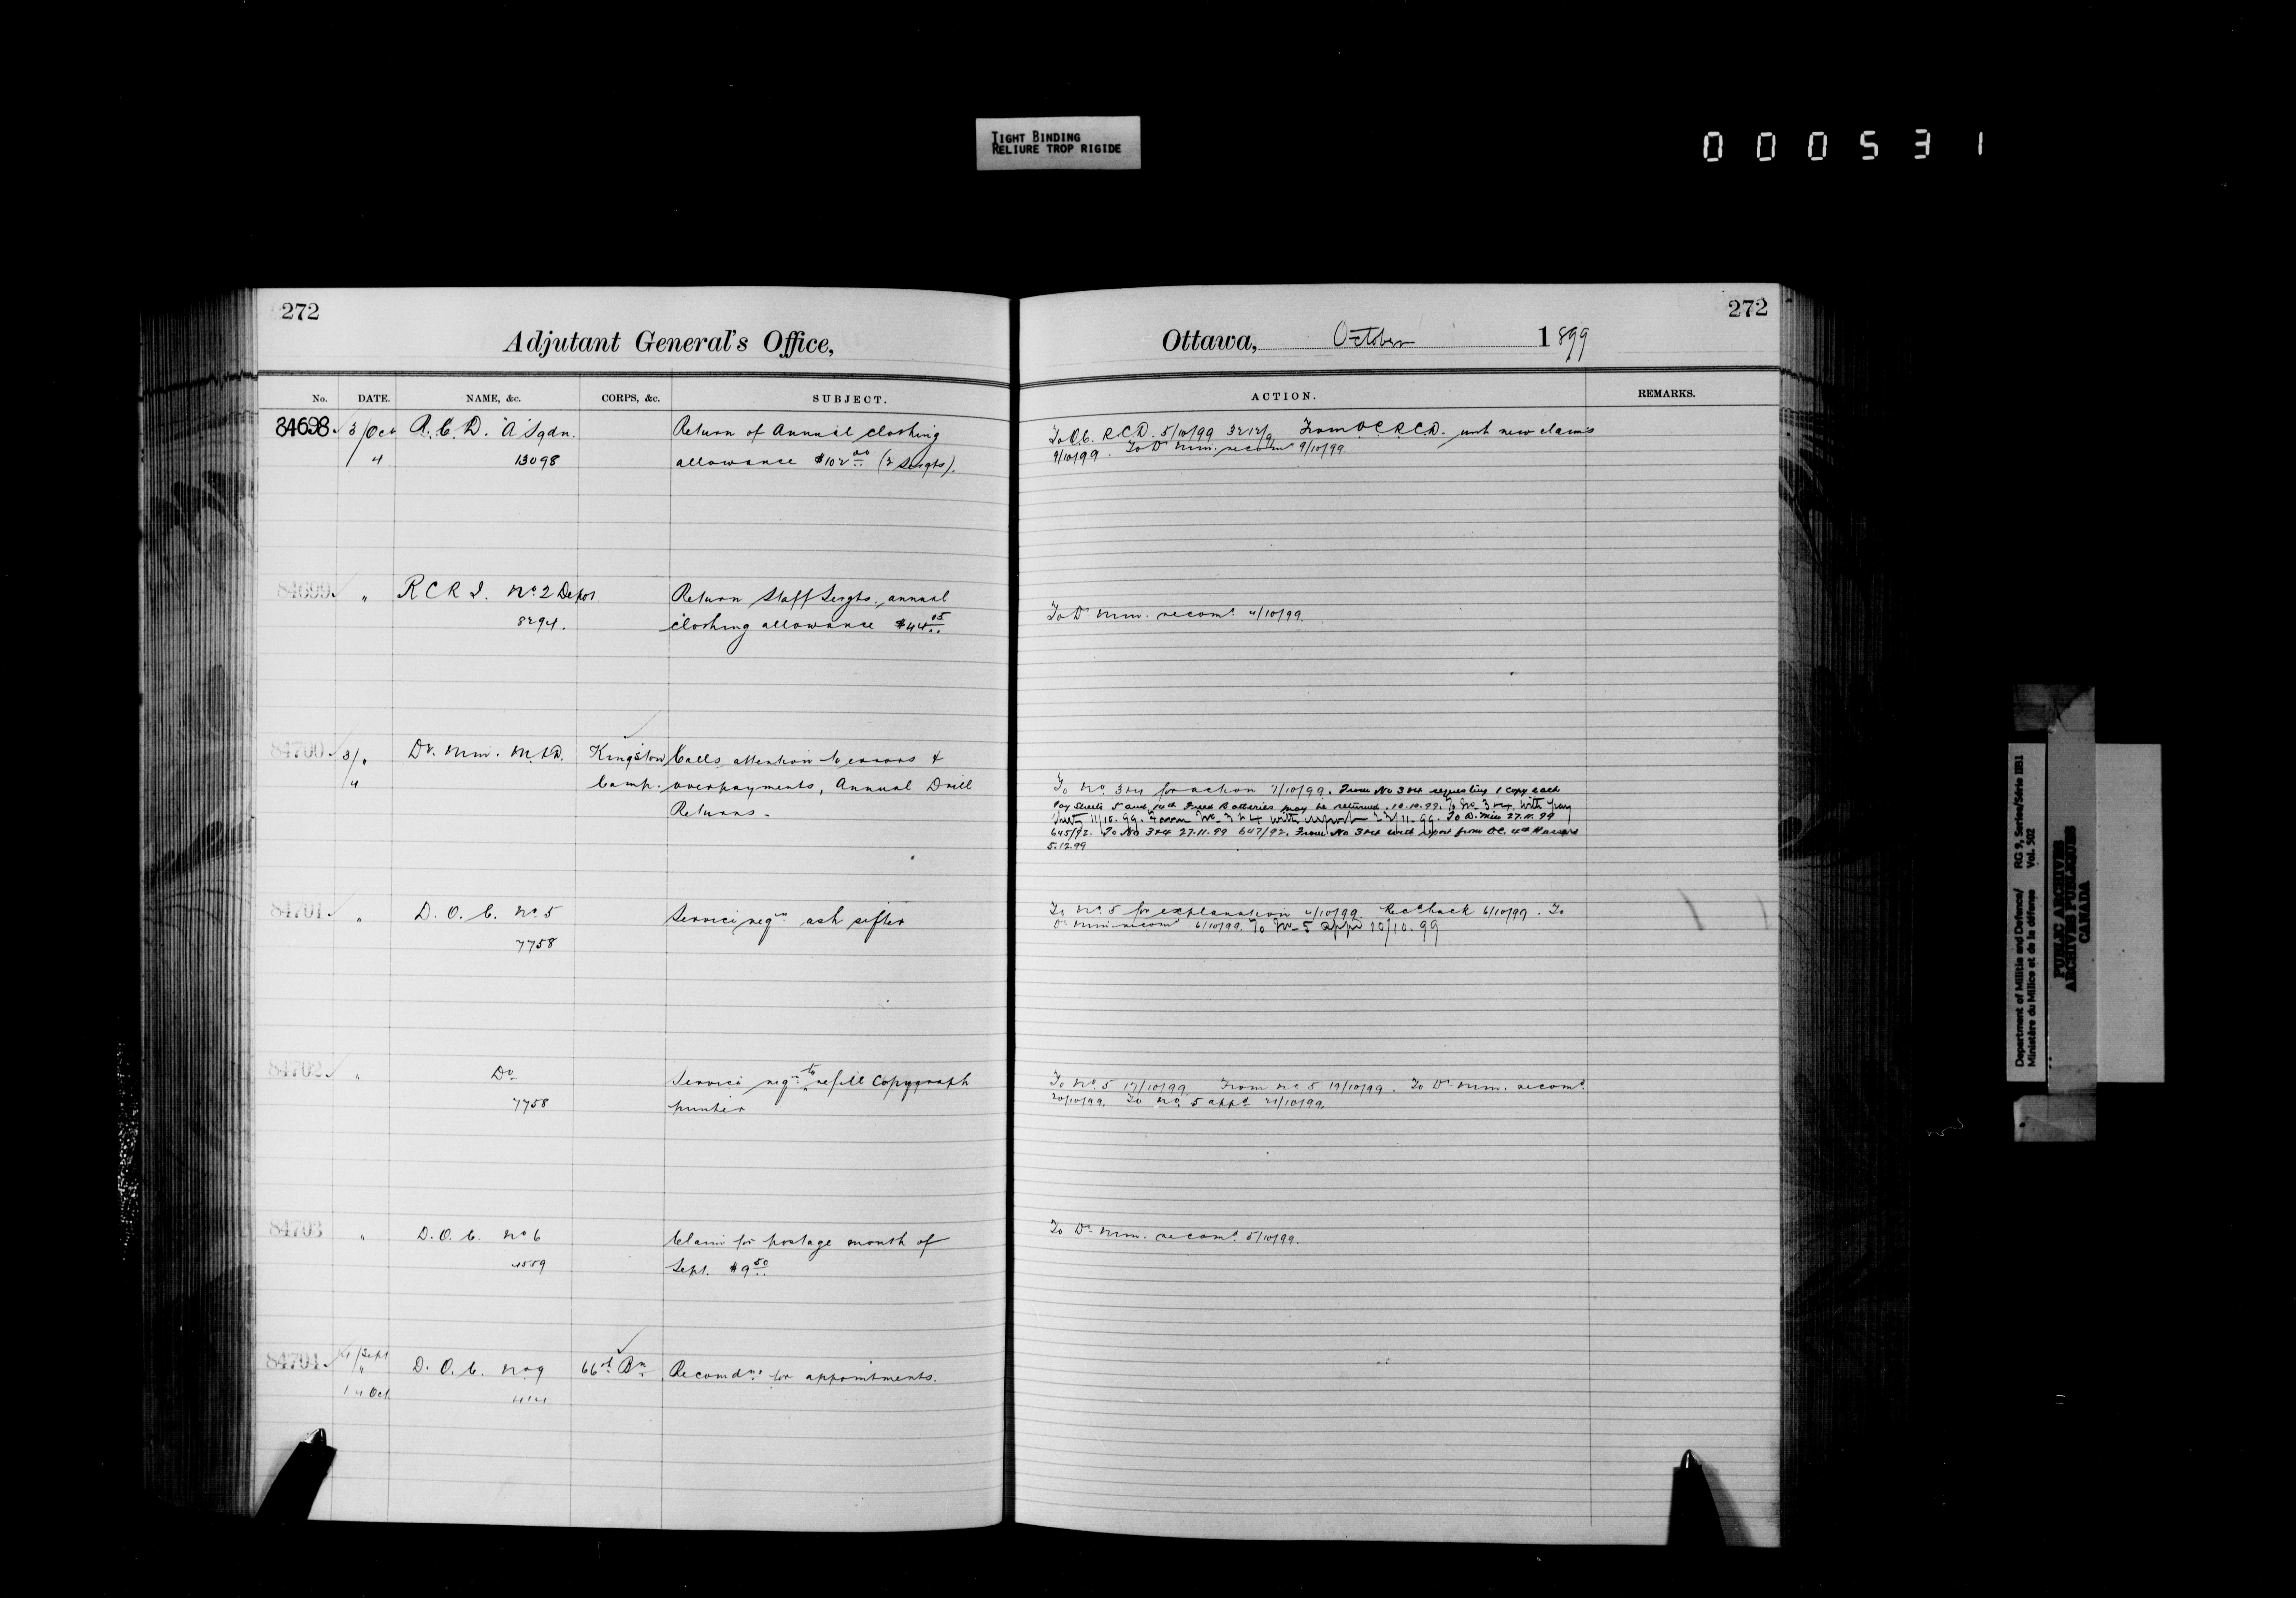 TIGHT BINDING
RELIURE TROP RIGIDE
000531
272
Adjutant General's Office,
No. DATE. NAME, &c. CORPS, &c. SUBJECT.
84698 3/Oct R.C.D. "A" Sqdn. Return of Annual clothing
4 13098 allowance $102.00 (2 Sergts).
84699 " R C R I. No. 2 Depot Return Staff Sergts. annual
8294. clothing allowance $44.05
84700 3/" Dr. Min. M. & D. Kingston Calls attention to errors &
4 Camp. overpayments, Annual Drill
Returns.
84701 " D. O. C. No. 5 Service reqn. ash sifter
7758
84702 " Do Service reqn. to refill Copygraph
7758 printer
84703 " D. O. C. No 6 Claim for postage month of
4559 Sept. $9.50
84704 /Sept D. O. C. No 9 66th Bn. Recomdns for appointments.
" Oct 414
272
Ottawa, October 1899
ACTION. REMARKS.
To O.C. R.C.D. 5/10/99 From O.C.R.C.D. with new claims
9/10/99. To Dr Min. recom 9/10/99.
To Dr Min. recomd. 4/10/99.
To No. 3 & 4 for action 7/10/99. From No 3 & 4 requesting 1 copy each
Pay Sheets 5 and Field Batteries may be returned. 10.10.99. To No. 3 & 4 with pay
From No. 3 & 4 with report 23/11.99. To D. Min 27.11.99
645/92. To No 3 & 4 27.11.99 647/92. From No 3 & 4 with report from O.C. 4th Hussars
5.12.99
To No. 5 for explanation 4/10/99. Recd back 6/10/99. To
Dr Min recomd 6/10/99. To No. 5 appd 10/10.99
To No. 5 17/10/99. From No 5 19/10/99. To Dr Min. recomd.
20/10/99. To No. 5 appd. 21/10/99.
To Dr Min. recomd. 5/10/99.
Department of Militia and Defence/ RG 9, Series/Série IIB1
Ministère du Milice et de la défense Vol. 502
PUBLIC ARCHIVES
ARCHIVES PUBLIQUES
CANADA